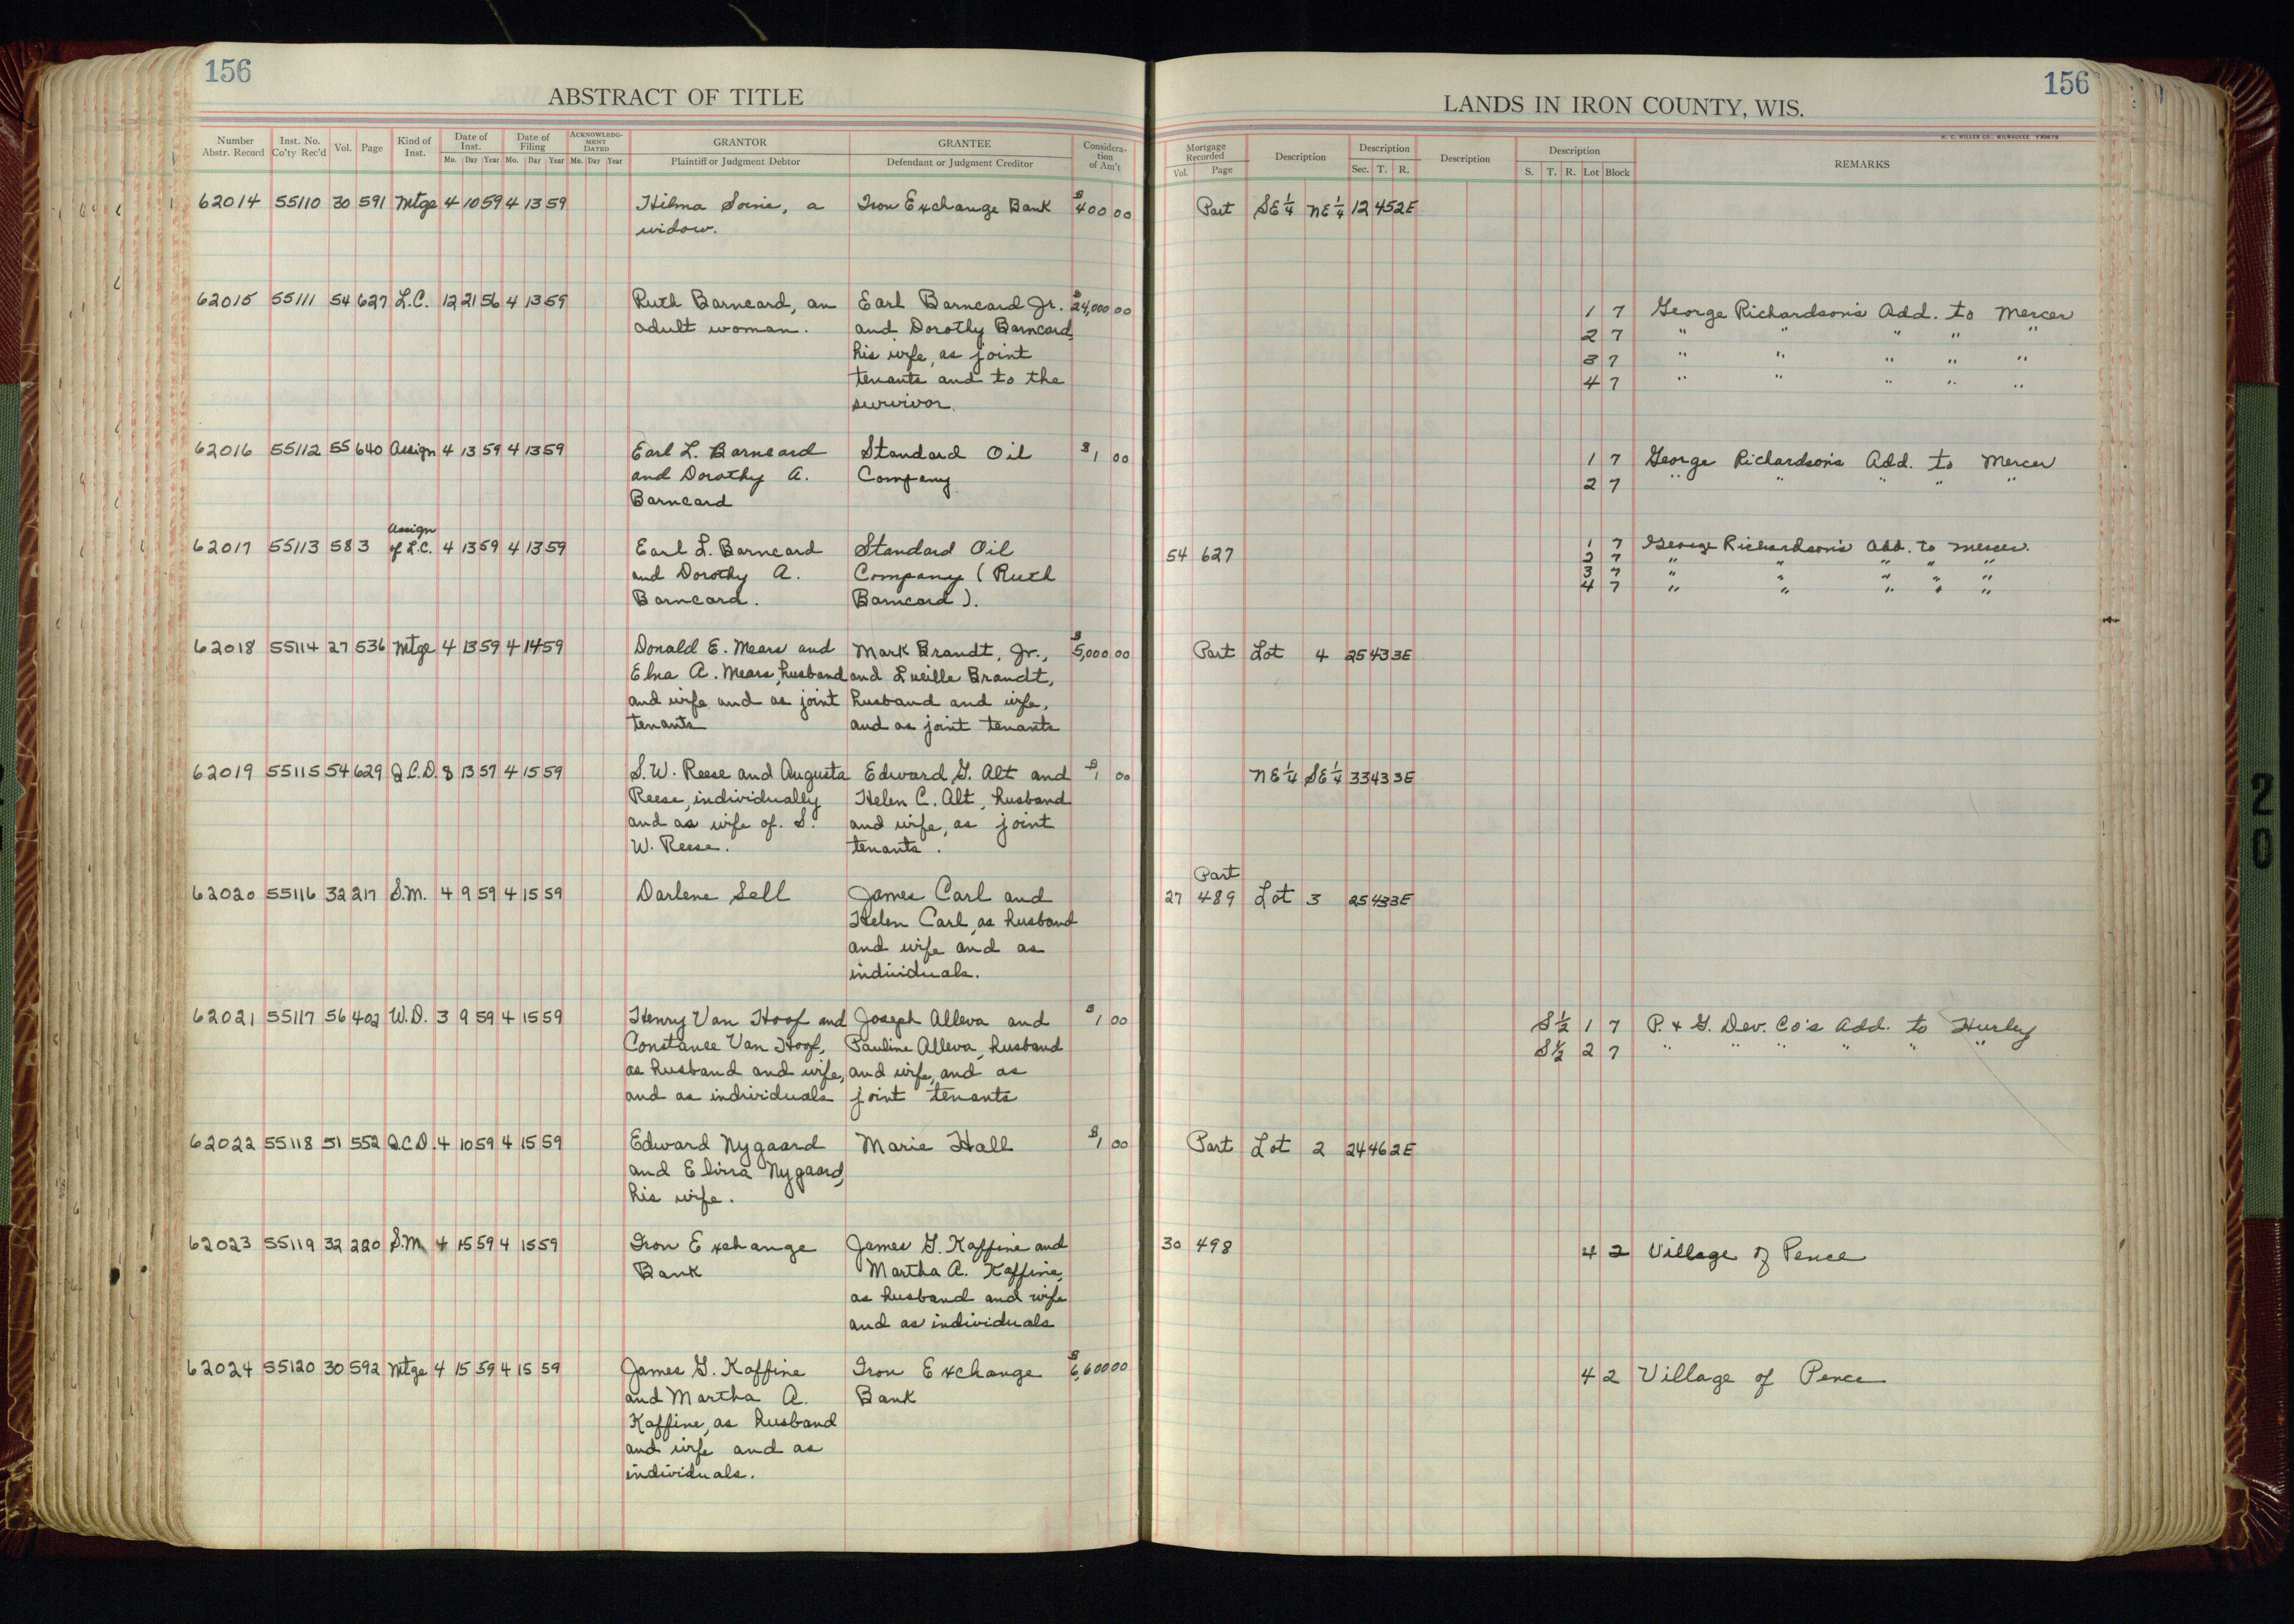 156
ABSTRACT OF TITLE
Number Abstr. Record | Inst. No. Co'ty Rec'd | Vol. | Page | Kind of Inst. | Date of Inst. Mo. Day Year | Date of Filing Mo. Day Year | ACKNOWLEDGMENT DATED Mo. Day Year | GRANTOR Plaintiff or Judgment Debtor | GRANTEE Defendant or Judgment Creditor | Consideration of Am't
62014 55110 30 591 Mtge 4 10 59 4 13 59 Hilma Soine, a Iron Exchange Bank $400 00
widow.
62015 55111 54 627 L.C. 12 21 56 4 13 59 Ruth Barncard, an Earl Barncard Jr. $24,000 00
adult woman. and Dorothy Barncard,
his wife, as joint
tenants and to the
survivor.
62016 55112 55 640 Assign 4 13 59 4 13 59 Earl L. Barncard Standard Oil $1 00
and Dorothy A. Company
Barncard
62017 55113 58 3 Assign of L.C. 4 13 59 4 13 59 Earl L. Barncard Standard Oil
and Dorothy A. Company (Ruth
Barncard. Barncard).
62018 55114 27 536 Mtge 4 13 59 4 14 59 Donald E. Mears and Mark Brandt, Jr., $5,000 00
Elna A. Mears, husband and Lucille Brandt,
and wife and as joint husband and wife,
tenants and as joint tenants
62019 55115 54 629 Q.C.D. 8 13 57 4 15 59 S. W. Reese and Augusta Edward G. Alt and $1 00
Reese, individually Helen C. Alt, husband
and as wife of S. and wife, as joint
W. Reese. tenants.
62020 55116 32 217 S.M. 4 9 59 4 15 59 Darlene Sell James Carl and
Helen Carl, as husband
and wife and as
individuals.
62021 55117 56 402 W.D. 3 9 59 4 15 59 Henry Van Hoof and Joseph Alleva and $1 00
Constance Van Hoof, Pauline Alleva, husband
as husband and wife, and wife, and as
and as individuals joint tenants
62022 55118 51 552 Q.C.D. 4 10 59 4 15 59 Edward Nygaard Marie Hall $1 00
and Elvira Nygaard,
his wife.
62023 55119 32 220 S.M. 4 15 59 4 15 59 Iron Exchange James G. Kaffine and
Bank Martha A. Kaffine,
as husband and wife
and as individuals
62024 55120 30 592 Mtge 4 15 59 4 15 59 James G. Kaffine Iron Exchange $6,600 00
and Martha A. Bank
Kaffine, as husband
and wife and as
individuals.
156
LANDS IN IRON COUNTY, WIS.
H. C. MILLER CO., MILWAUKEE
Mortgage Recorded Vol. Page | Description | Description Sec. T. R. | Description | Description S. T. R. Lot Block | REMARKS
Part SE 1/4 NE 1/4 12 45 2E
1 7 George Richardson's Add. to Mercer
2 7 " " " " "
3 7 " " " " "
4 7 " " " " "
1 7 George Richardson's Add. to Mercer
2 7 " " " " "
1 7 George Richardson's Add. to Mercer.
54 627 2 7 " " " " "
3 7 " " " " "
4 7 " " " " "
Part Lot 4 25 43 3E
NE 1/4 SE 1/4 33 43 3E
Part
27 489 Lot 3 25 43 3E
S 1/2 1 7 P. & G. Dev. Co's Add. to Hurley
S 1/2 2 7 " " " " " "
Part Lot 2 24 46 2E
30 498 4 2 Village of Pence
4 2 Village of Pence
20